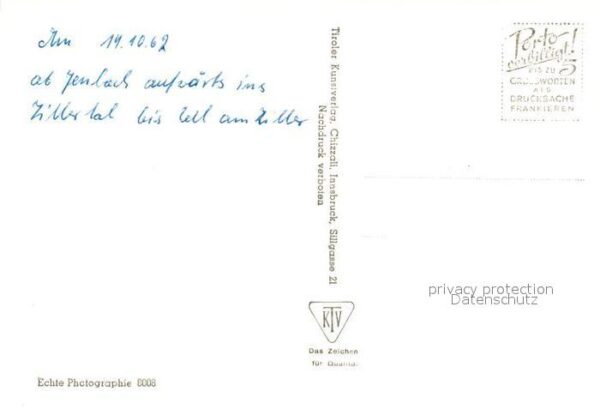 Am 19.10.62
ab Jenbach aufwärts ins
Zillertal bis Zell am Ziller
Tiroler Kunstverlag, Chizzali, Innsbruck, Sillgasse 21
Nachdruck verboten
Porto-
verbilligt!
BIS ZU 5
GRUSSWORTEN
ALS
DRUCKSACHE
FRANKIEREN
privacy protection
Datenschutz
KTV
Das Zeichen
für Qualität
Echte Photographie 8008